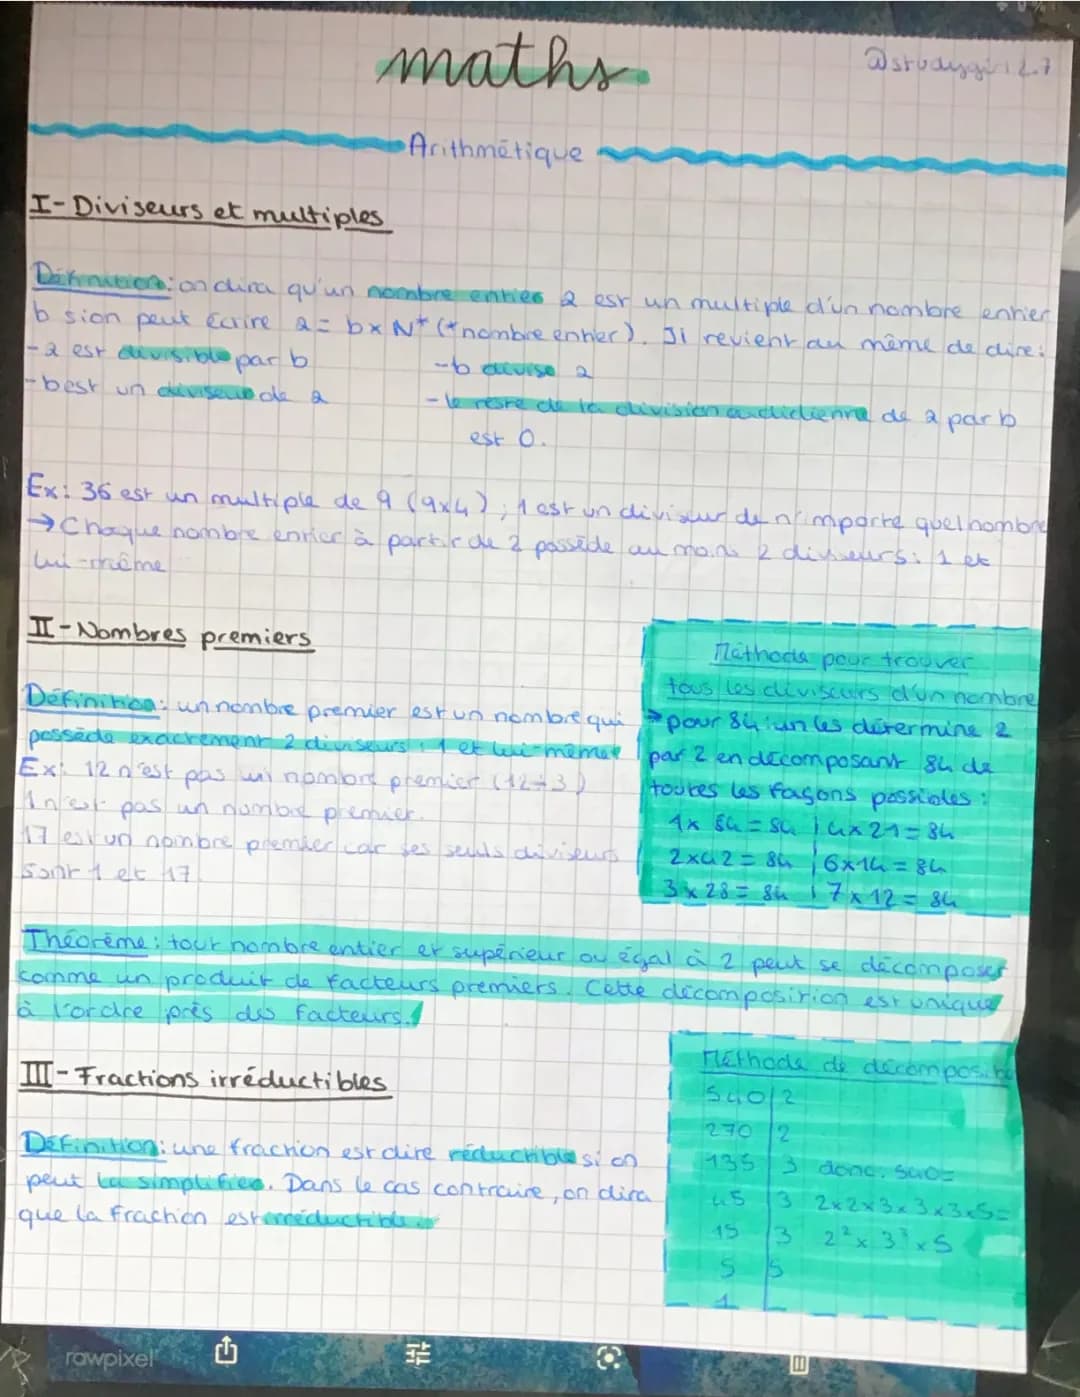 maths
@studygirl2.7
Arithmétique
I-Diviseurs et multiples
Définition: on dira qu'un nombre entier a est un multiple d'un nombre entier
b si on peut écrire a = b x N* (*nombre entier). Il revient au même de dire:
-a est divisible par b
-b divise a
-b est un diviseur de a
-le reste de la division euclidienne de a par b
est 0.
Ex: 36 est un multiple de 9 (9x4); 1 est un diviseur de n'importe quel nombre
→Chaque nombre entier à partir de 2 possède au moins 2 diviseurs: 1 et
lui-même
II-Nombres premiers
Définition: un nombre premier est un nombre qui
possède exactement 2 diviseurs: 1 et lui-même
Ex: 12 n'est pas un nombre premier (12÷3)
1 n'est pas un nombre premier.
17 est un nombre premier car ses seuls diviseurs
sont 1 et 17
Méthode pour trouver
tous les diviseurs d'un nombre
→pour 84: on les détermine 2
par 2 en décomposant 84 de
toutes les façons possibles:
1x 84 = 84 | 4x21=84
2x42 = 84 | 6x14 = 84
3x28 = 84 | 7x12 = 84
Théorème: tout nombre entier et supérieur ou égal à 2 peut se décomposer
comme un produit de facteurs premiers. Cette décomposition est unique
à l'ordre près des facteurs.
III-Fractions irréductibles
Définition: une fraction est dite réductible si on
peut la simplifier. Dans le cas contraire, on dira
que la fraction est irréductible.
Méthode de décomposition
540|2
270|2
135|3 donc: 540=
45|3 2x2x3x3x3x5=
15|3 2²x 3³x5
5|5
1|
rawpixel